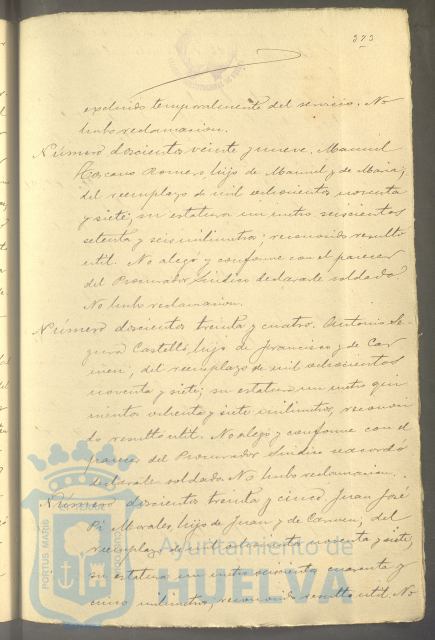 373
excluido temporalmente del servicio. No
hubo reclamacion.
Número doscientos veinte y nueve. Manuel
Toscano Romero, hijo de Manuel y de Maria,
del reemplazo de mil ochocientos noventa
y siete; su estatura un metro seiscientos
setenta y seis milimetros; reconocido resultó
util. No alegó y conforme con el parecer
del Procurador Sindico declararle soldado
No hubo reclamacion.
Número doscientos treinta y cuatro. Antonio Se-
gura Castelló, hijo de Francisco y de Car-
men, del reemplazo de mil ochocientos
noventa y siete; su estatura un metro qui-
nientos ochenta y siete milimetros, reconoci-
do resultó util. No alegó y conforme con el
parecer del Procurador Sindico se acordó
declararle soldado. No hubo reclamacion.
Número doscientos treinta y cinco. Juan José
Pi Morales, hijo de Juan y de Carmen; del
reemplazo de mil ochocientos noventa y siete,
su estatura un metro seiscientos cuarenta y
cinco milimetros, reconocido resultó util. No
PORTUS MARIS
Ayuntamiento de
HUELVA